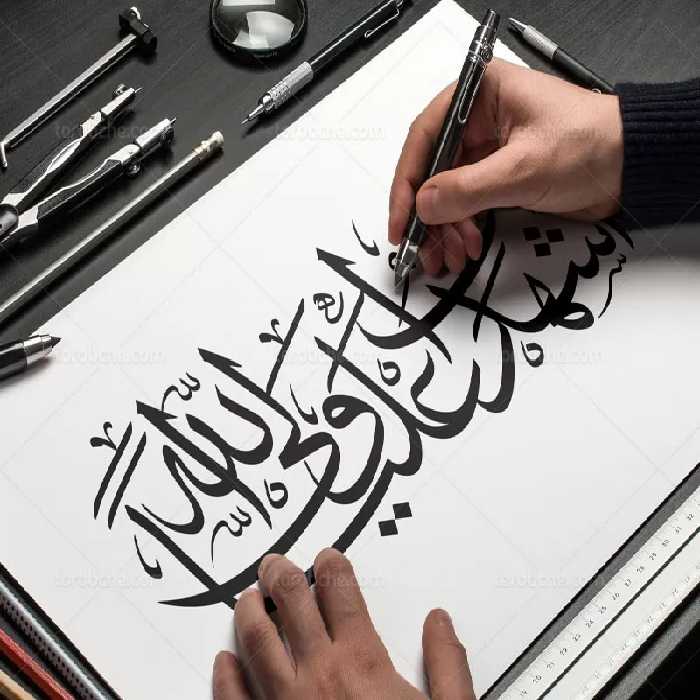 اشهد ان علیا ولی الله
torobche.com